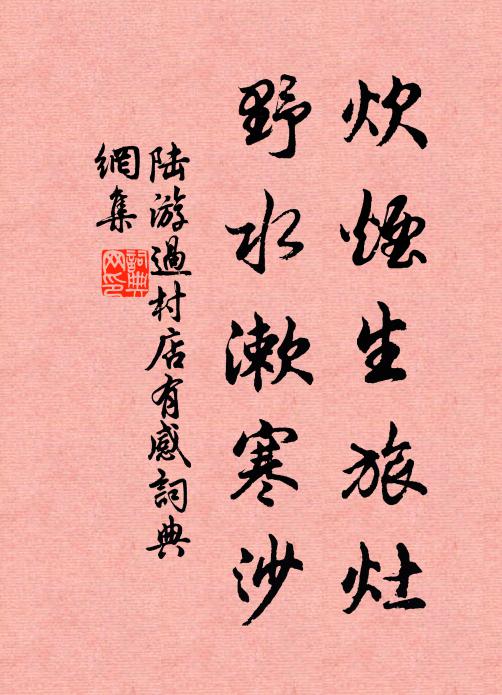 炊煙生旅灶
野水漱寒沙
陆游過村店有感詞典
網集
詞典网印